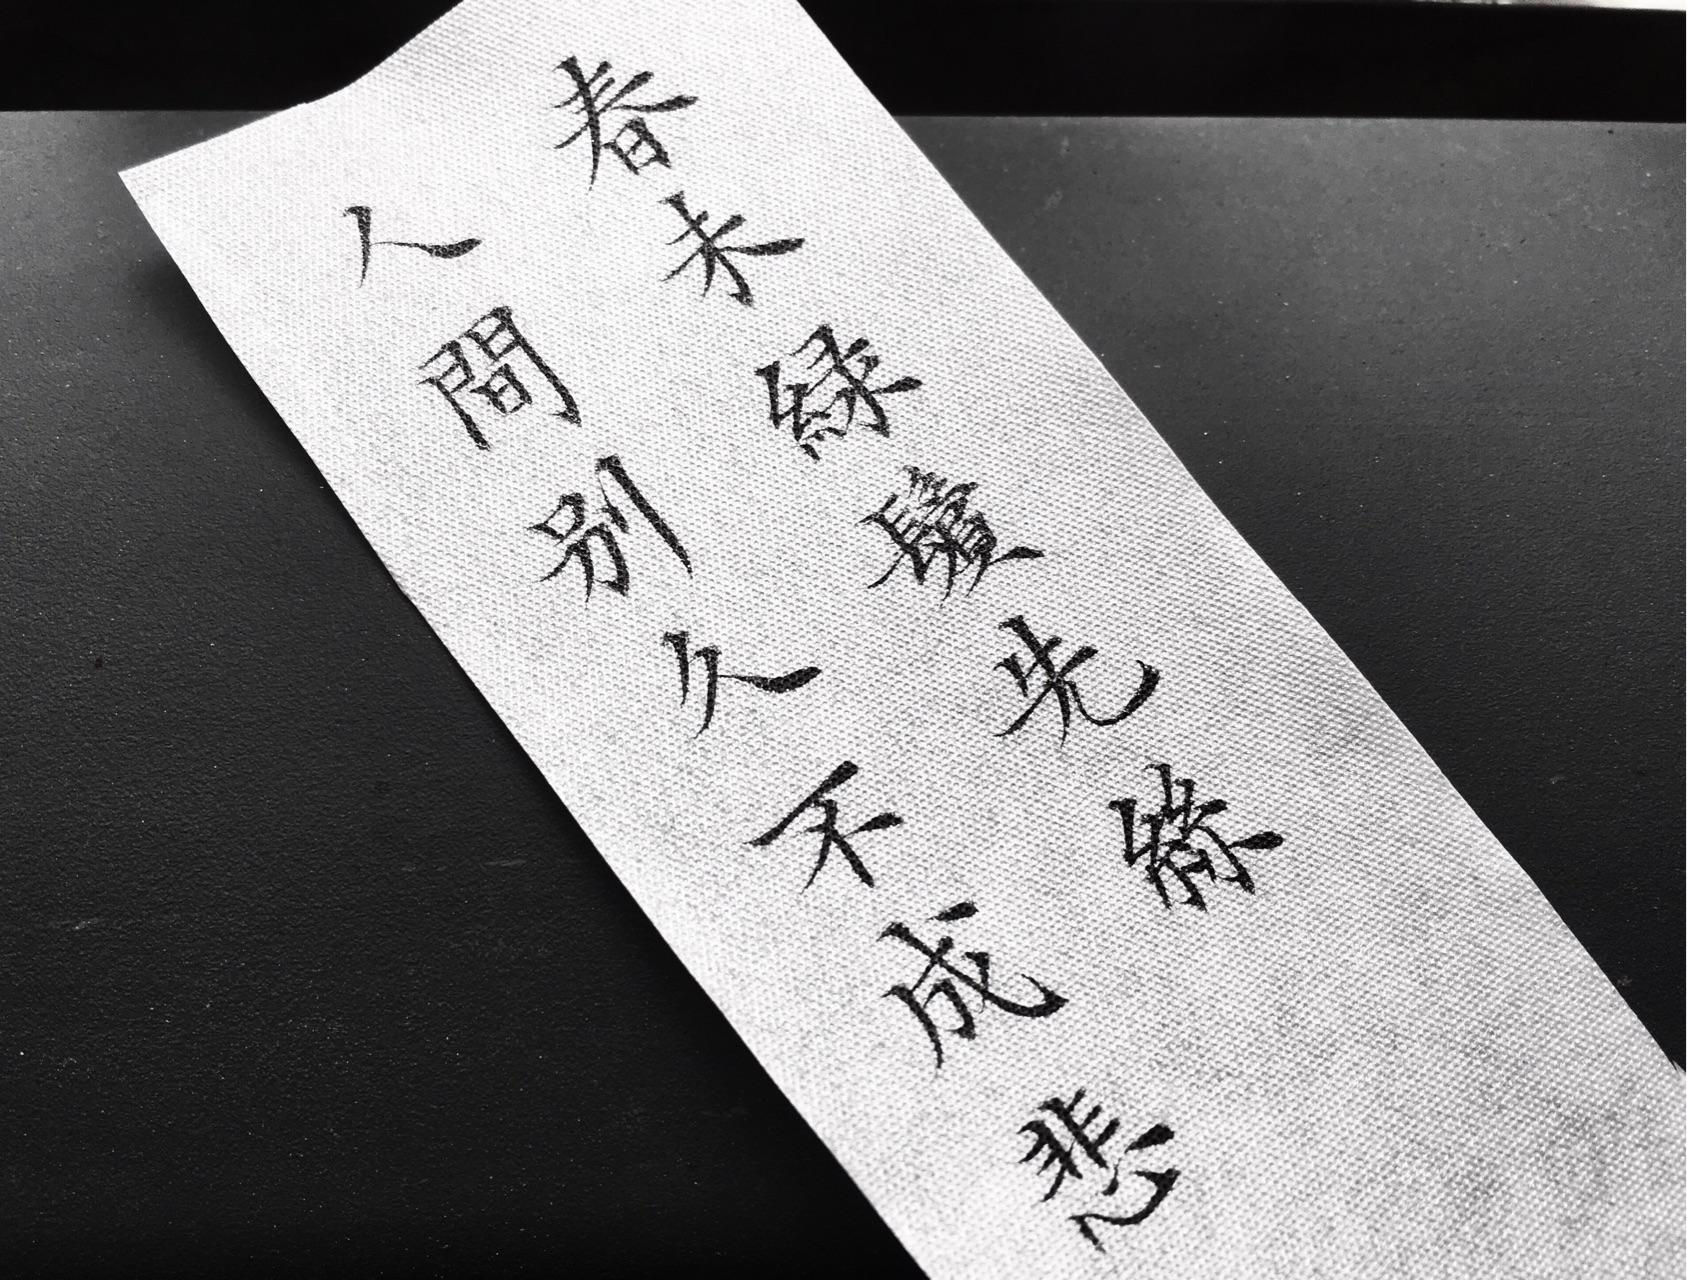 春未綠鬢先絲
人間別久不成悲